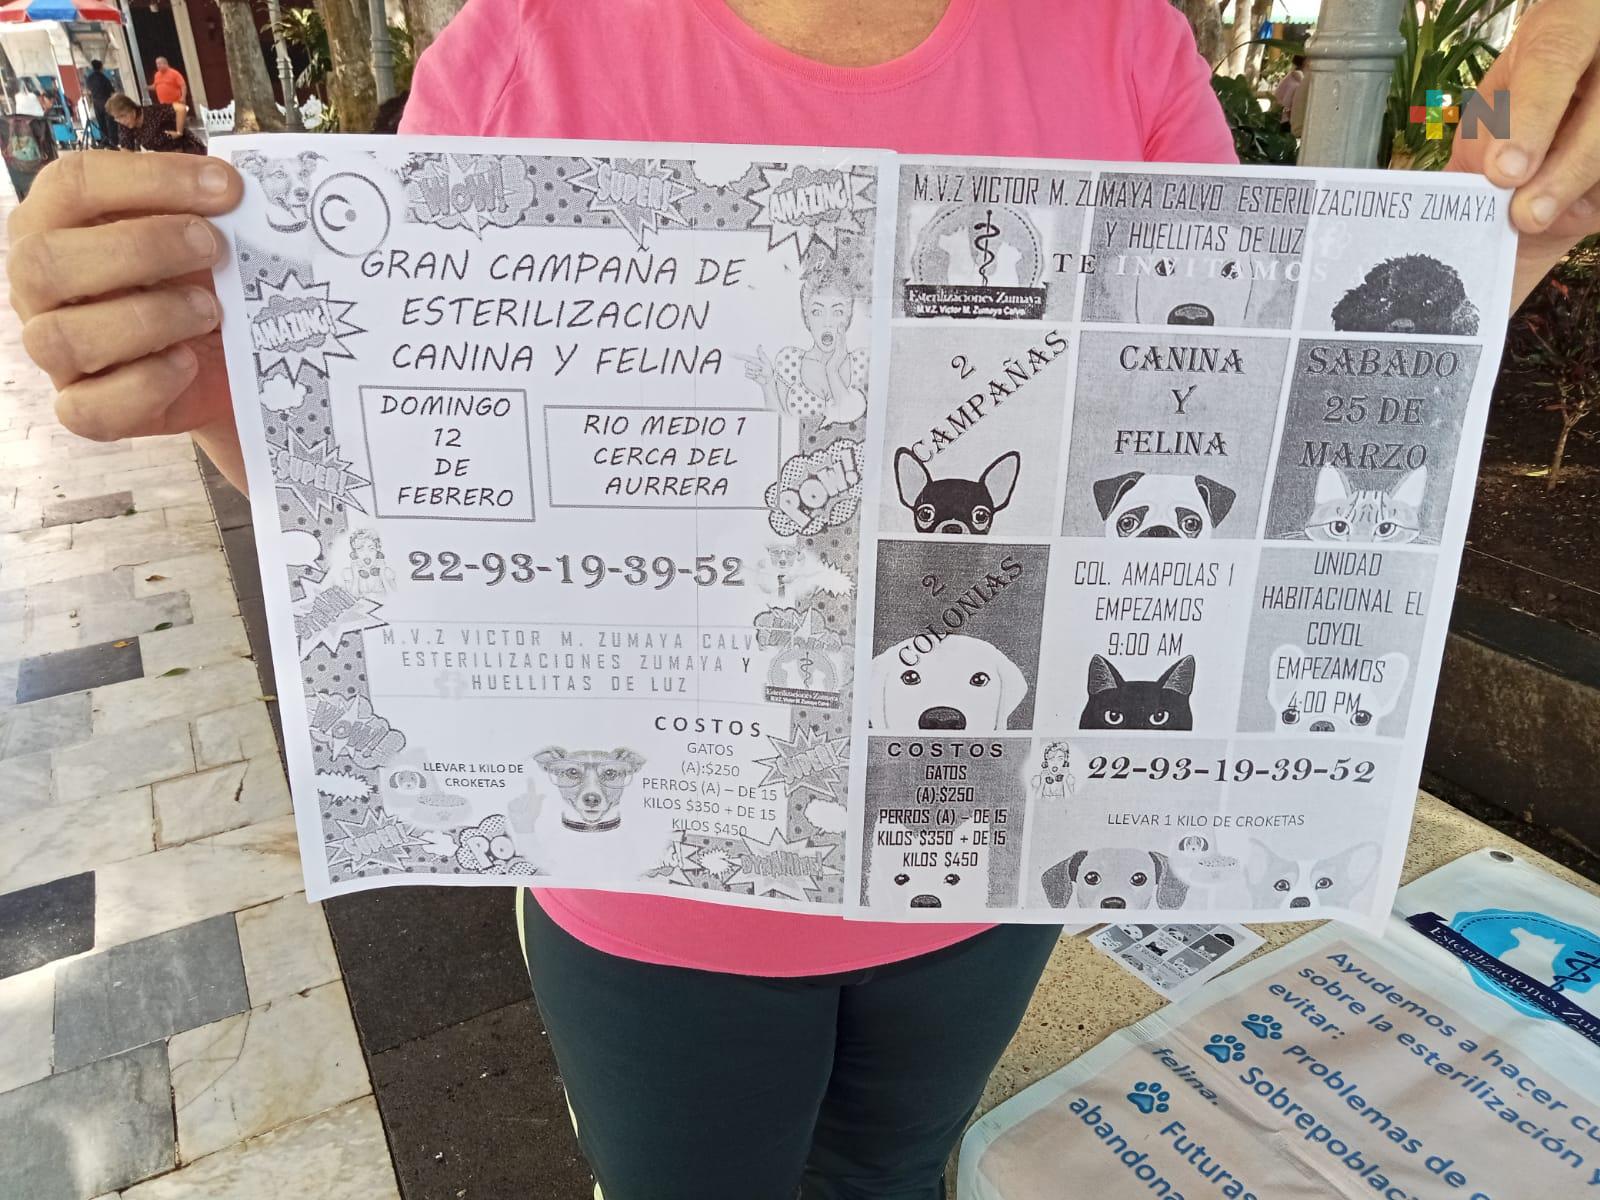 +N
WOW!
SUPER!
AMAZING!
GRAN CAMPAÑA DE
ESTERILIZACION
CANINA Y FELINA
AMAZING!
DOMINGO
12
DE
FEBRERO
RIO MEDIO 1
CERCA DEL
AURRERA
SUPER!
POW!
22-93-19-39-52
M.V.Z VICTOR M. ZUMAYA CALV
ESTERILIZACIONES ZUMAYA Y
HUELLITAS DE LUZ
Esterilizaciones Zumaya
M.V.Z. Victor M. Zumaya Calvo
WOW!
COSTOS
GATOS
(A):$250
PERROS (A) – DE 15
KILOS $350 + DE 15
KILOS $450
LLEVAR 1 KILO DE
CROKETAS
M.V.Z VICTOR M. ZUMAYA CALVO ESTERILIZACIONES ZUMAYA
Y HUELLITAS DE LUZ
TE INVITAMOS
Esterilizaciones Zumaya
M.V.Z. Victor M. Zumaya Calvo
2
CAMPAÑAS
CANINA
Y
FELINA
SABADO
25 DE
MARZO
2
COLONIAS
COL. AMAPOLAS 1
EMPEZAMOS
9:00 AM
UNIDAD
HABITACIONAL EL
COYOL
EMPEZAMOS
4:00 PM
COSTOS
GATOS
(A):$250
PERROS (A) – DE 15
KILOS $350 + DE 15
KILOS $450
22-93-19-39-52
LLEVAR 1 KILO DE CROKETAS
Esterilizaciones Zu
Ayudemos a hacer
sobre la esterilización y
evitar:
felina.
Problemas de
Sobrepoblac
Futuras
abandona